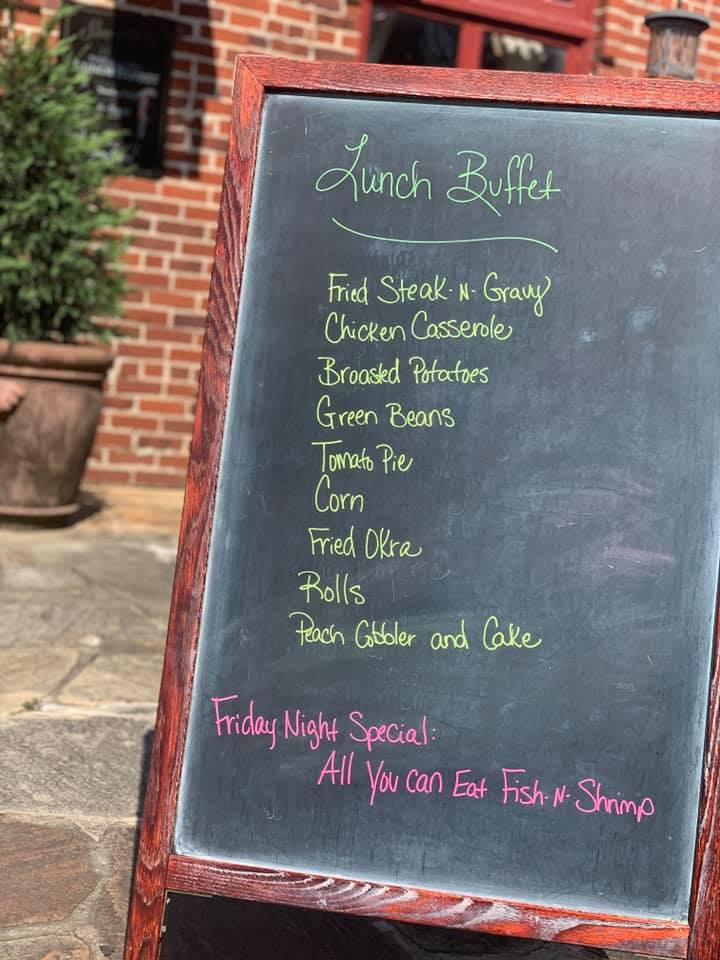 Lunch Buffet
Fried Steak-N-Gravy
Chicken Casserole
Broasted Potatoes
Green Beans
Tomato Pie
Corn
Fried Okra
Rolls
Peach Cobbler and Cake
Friday Night Special:
All You can Eat Fish-N-Shrimp